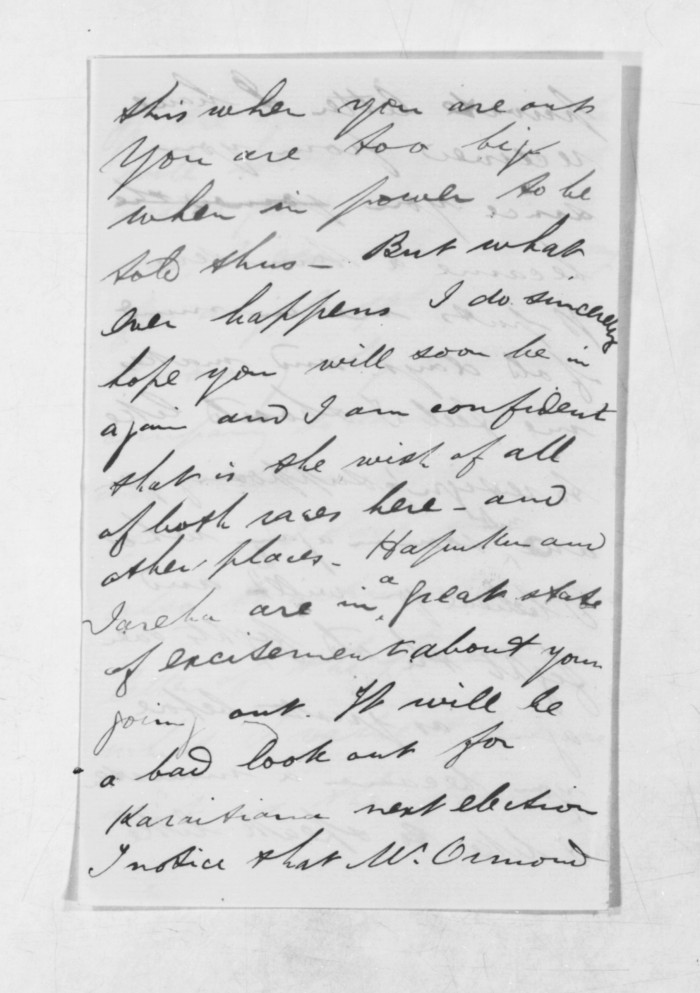 this when you are out
You are too big
when in power to be
told thus - But what
ever happens I do sincerely
hope you will soon be in
again and I am confident
that is the wish of all
of both races here - and
other places - Hapuku and
Tareha are in a great state
of excitement about your
going out. It will be
a bad look out for
Karaitiana next election
I notice that Mr. Ormond